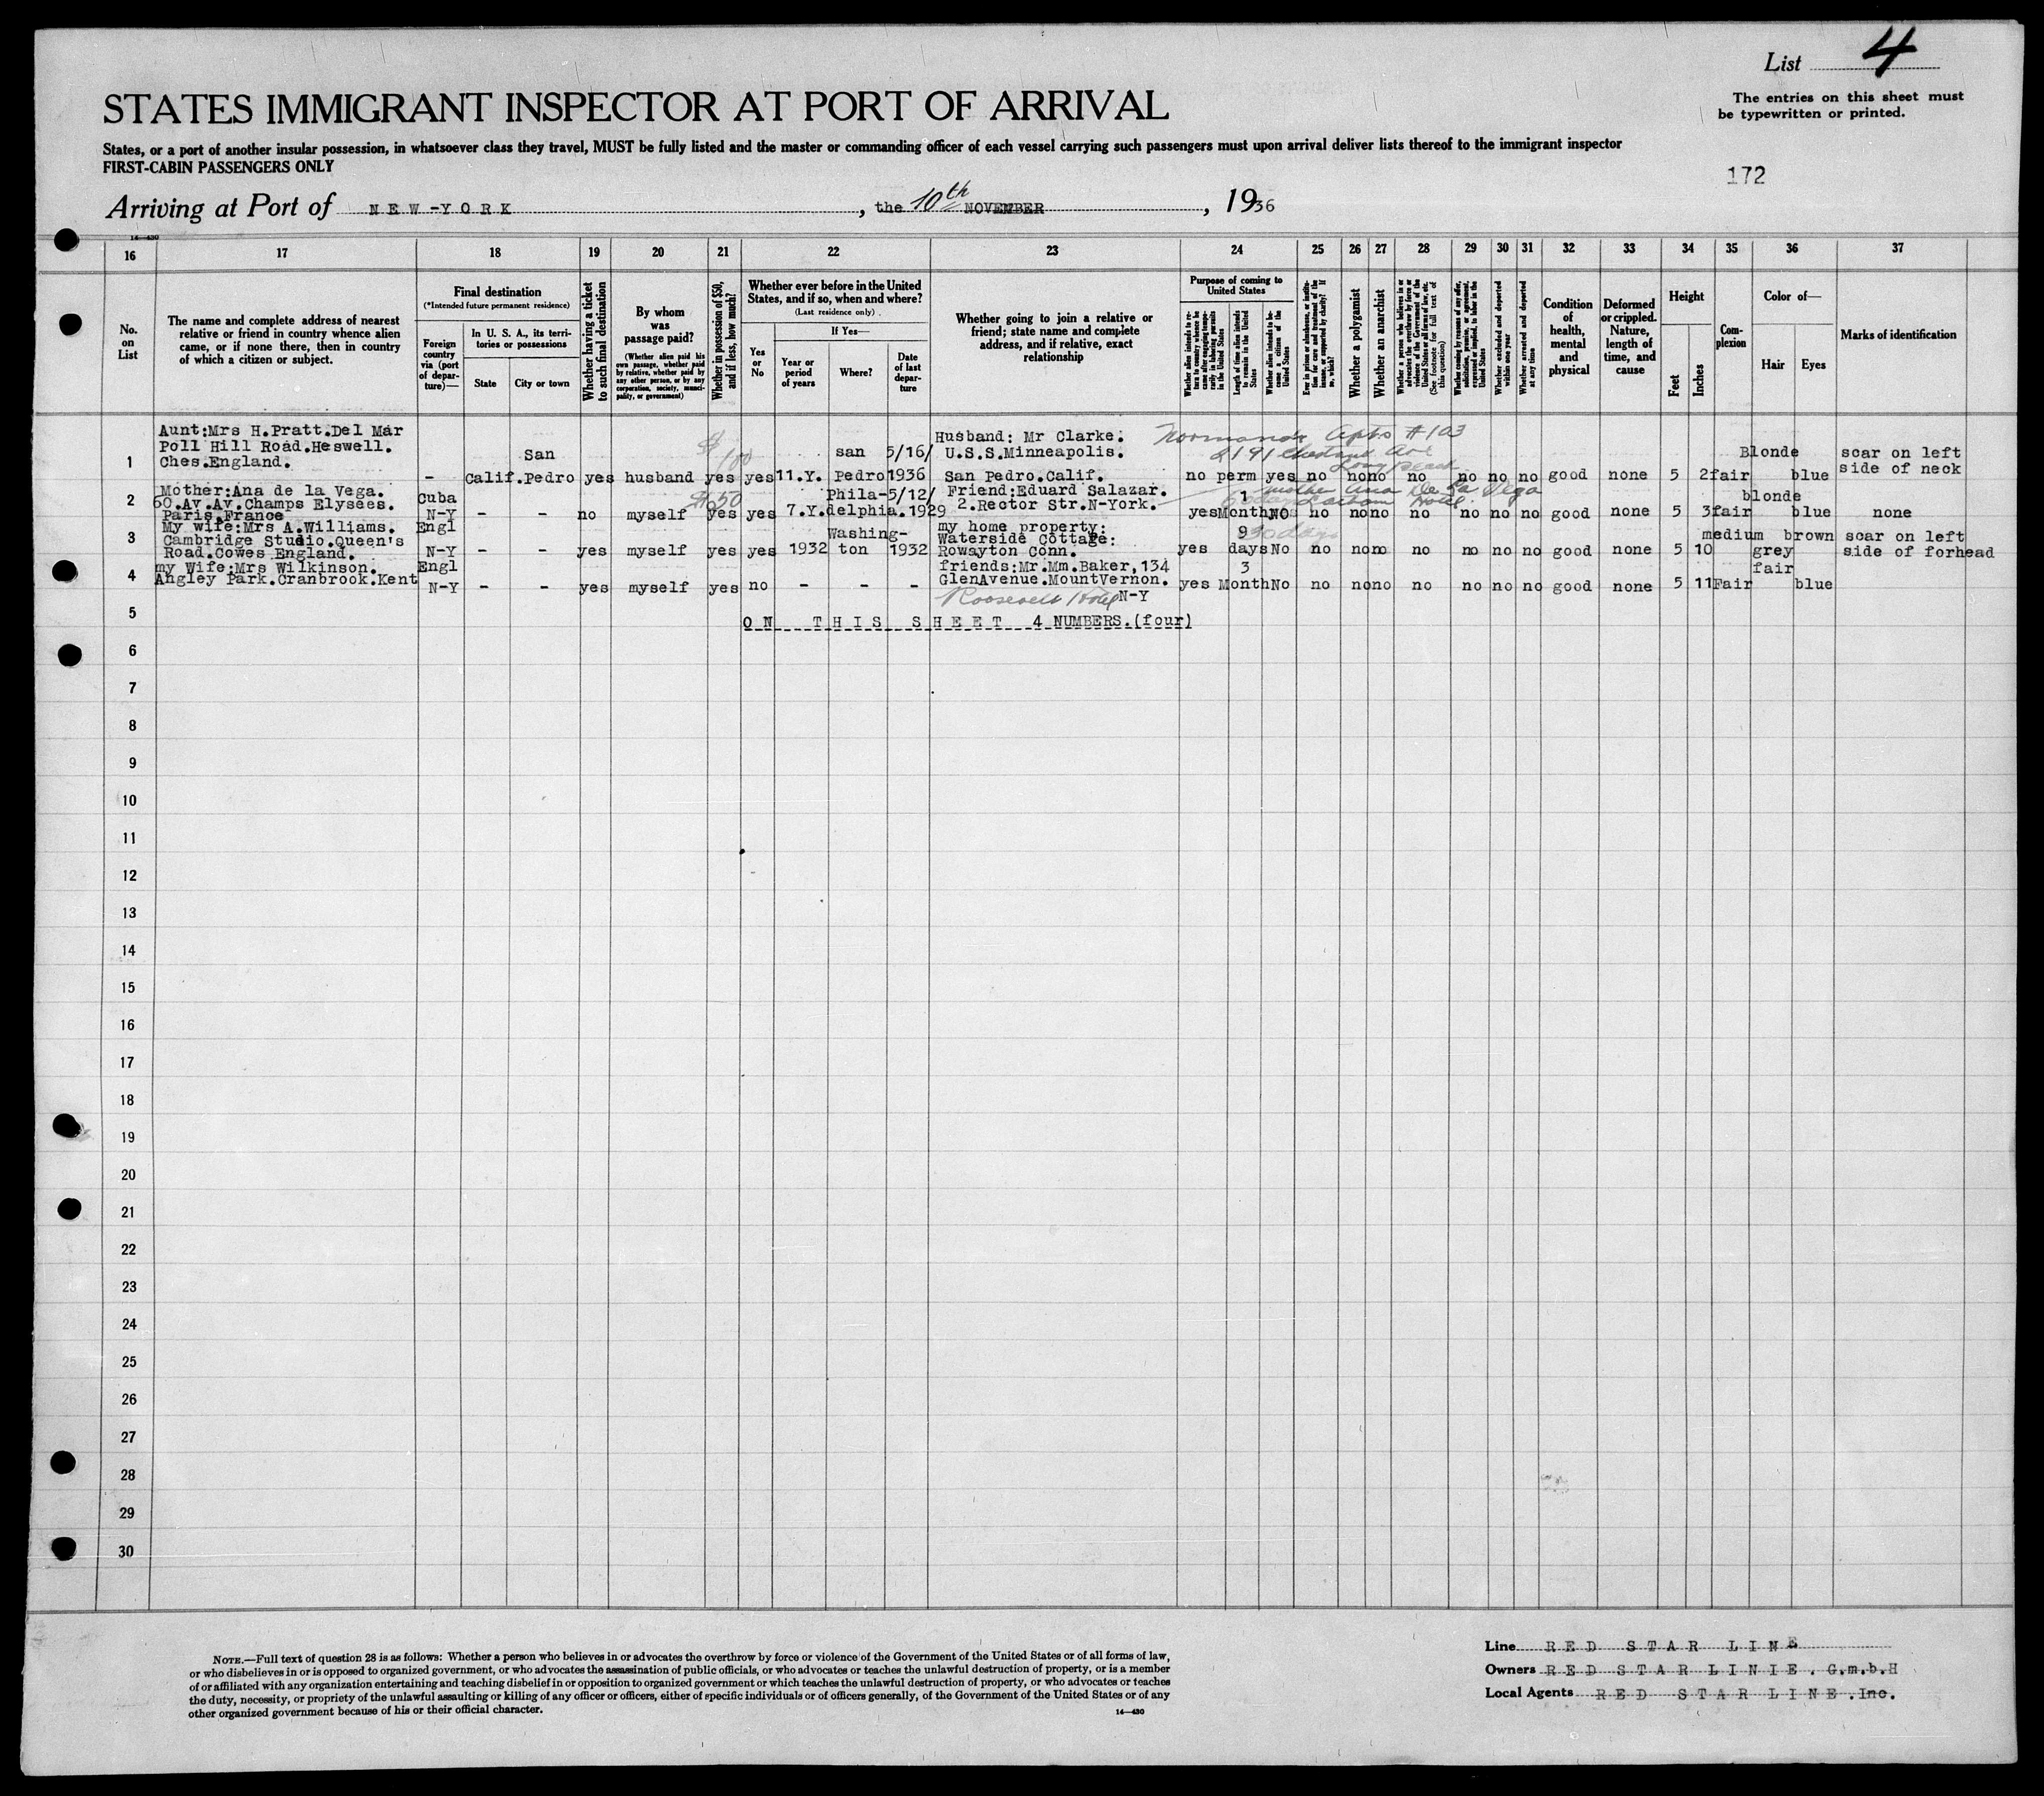 List 4
The entries on this sheet must
be typewritten or printed.
STATES IMMIGRANT INSPECTOR AT PORT OF ARRIVAL
States, or a port of another insular possession, in whatsoever class they travel, MUST be fully listed and the master or commanding officer of each vessel carrying such passengers must upon arrival deliver lists thereof to the immigrant inspector
FIRST-CABIN PASSENGERS ONLY
172
Arriving at Port of NEW-YORK, the 10th NOVEMBER, 1936
14—430
16 17 18 19 20 21 22 23 24 25 26 27 28 29 30 31 32 33 34 35 36 37
No. on List
The name and complete address of nearest relative or friend in country whence alien came, or if none there, then in country of which a citizen or subject.
Final destination
(*Intended future permanent residence)
Foreign country via (port of departure)—
In U. S. A., its territories or possessions
State
City or town
Whether having a ticket to such final destination
By whom was passage paid?
(Whether alien paid his own passage, whether paid by relative, whether paid by any other person, or by any corporation, society, municipality, or government)
Whether in possession of $50, and if less, how much?
Whether ever before in the United States, and if so, when and where?
(Last residence only)
If Yes—
Yes or No
Year or period of years
Where?
Date of last departure
Whether going to join a relative or friend; state name and complete address, and if relative, exact relationship
Purpose of coming to United States
Whether alien intends to return to country whence he came after engaging temporarily in laboring pursuits in the United States
Length of time alien intends to remain in the United States
Whether alien intends to become a citizen of the United States
Ever in prison or almshouse, or institution for care and treatment of the insane, or supported by charity? If so, which?
Whether a polygamist
Whether an anarchist
Whether a person who believes in or advocates the overthrow by force or violence of the Government of the United States or all forms of law, etc. (See footnote for full text of this question)
Whether coming by reason of any offer, solicitation, promise, or agreement, expressed or implied, to labor in the United States
Whether excluded and deported within one year
Whether arrested and deported at any time
Condition of health, mental and physical
Deformed or crippled. Nature, length of time, and cause
Height
Feet
Inches
Complexion
Color of—
Hair
Eyes
Marks of identification
1 Aunt:Mrs H.Pratt.Del Mar
Poll Hill Road.Heswell.
Ches.England.
- Calif. San Pedro yes husband $100 yes yes 11.Y. san Pedro 5/16/1936
Husband: Mr Clarke.
U.S.S.Minneapolis.
San Pedro.Calif.
Apts #103
Chestnut Ave
Long Beach
no perm yes no no no no no no no good none 5 2 fair Blonde blue scar on left side of neck
2 Mother:Ana de la Vega.
60.Av.Av.Champs Elysées.
Paris.France
Cuba N-Y - - no myself $50 yes yes 7.Y. Philadelphia. 5/12/1929
Friend:Eduard Salazar.
2.Rector Str.N-York.
mother Ana De La Vega
Hotel
yes 1 Month NO no no no no no no no good none 5 3 fair blonde blue none
3 My wife:Mrs A.Williams.
Cambridge Studio.Queen's
Road.Cowes England.
Engl N-Y - - yes myself yes yes 1932 Washington 1932
my home property:
Waterside Cottage:
Rowayton Conn.
30 days
yes 9 days No no no no no no no no good none 5 10 medium grey brown scar on left side of forhead
4 my Wife:Mrs Wilkinson.
Angley Park.Cranbrook.Kent
Engl N-Y - - yes myself yes no - - -
friends:Mr.Mm.Baker,134
GlenAvenue.MountVernon.
N-Y
Roosevelt Hotel
yes 3 Month No no no no no no no no good none 5 11 Fair fair blue
5
ON THIS SHEET 4 NUMBERS.(four)
6
7
8
9
10
11
12
13
14
15
16
17
18
19
20
21
22
23
24
25
26
27
28
29
30
NOTE.—Full text of question 28 is as follows: Whether a person who believes in or advocates the overthrow by force or violence of the Government of the United States or of all forms of law,
or who disbelieves in or is opposed to organized government, or who advocates the assassination of public officials, or who advocates or teaches the unlawful destruction of property, or is a member
of or affiliated with any organization entertaining and teaching disbelief in or opposition to organized government or which teaches the unlawful destruction of property, or who advocates or teaches
the duty, necessity, or propriety of the unlawful assaulting or killing of any officer or officers, either of specific individuals or of officers generally, of the Government of the United States or of any
other organized government because of his or their official character.
14—430
Line RED STAR LINE
Owners RED STAR LINIE. G.m.b.H
Local Agents RED STAR LINE.Inc.